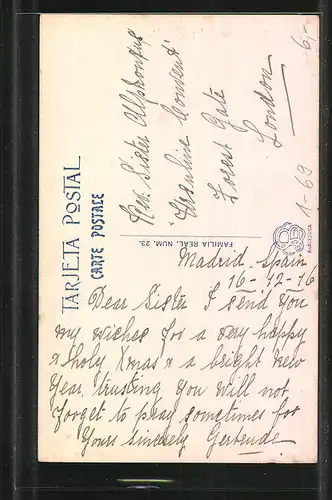 TARJETA POSTAL
CARTE POSTALE
Rev. Sister Alphonsus
Ursuline Convent
Forest Gate
London
FAMILIA REAL. NUM. 23.
BARCELONA
6,-
1-69
Madrid Spain
16-12-16
Dear Sister I send you
my wishes for a very happy
& holy Xmas & a bright New
Year, trusting you will not
forget to pray sometimes for
Yours sincerely Gertrude